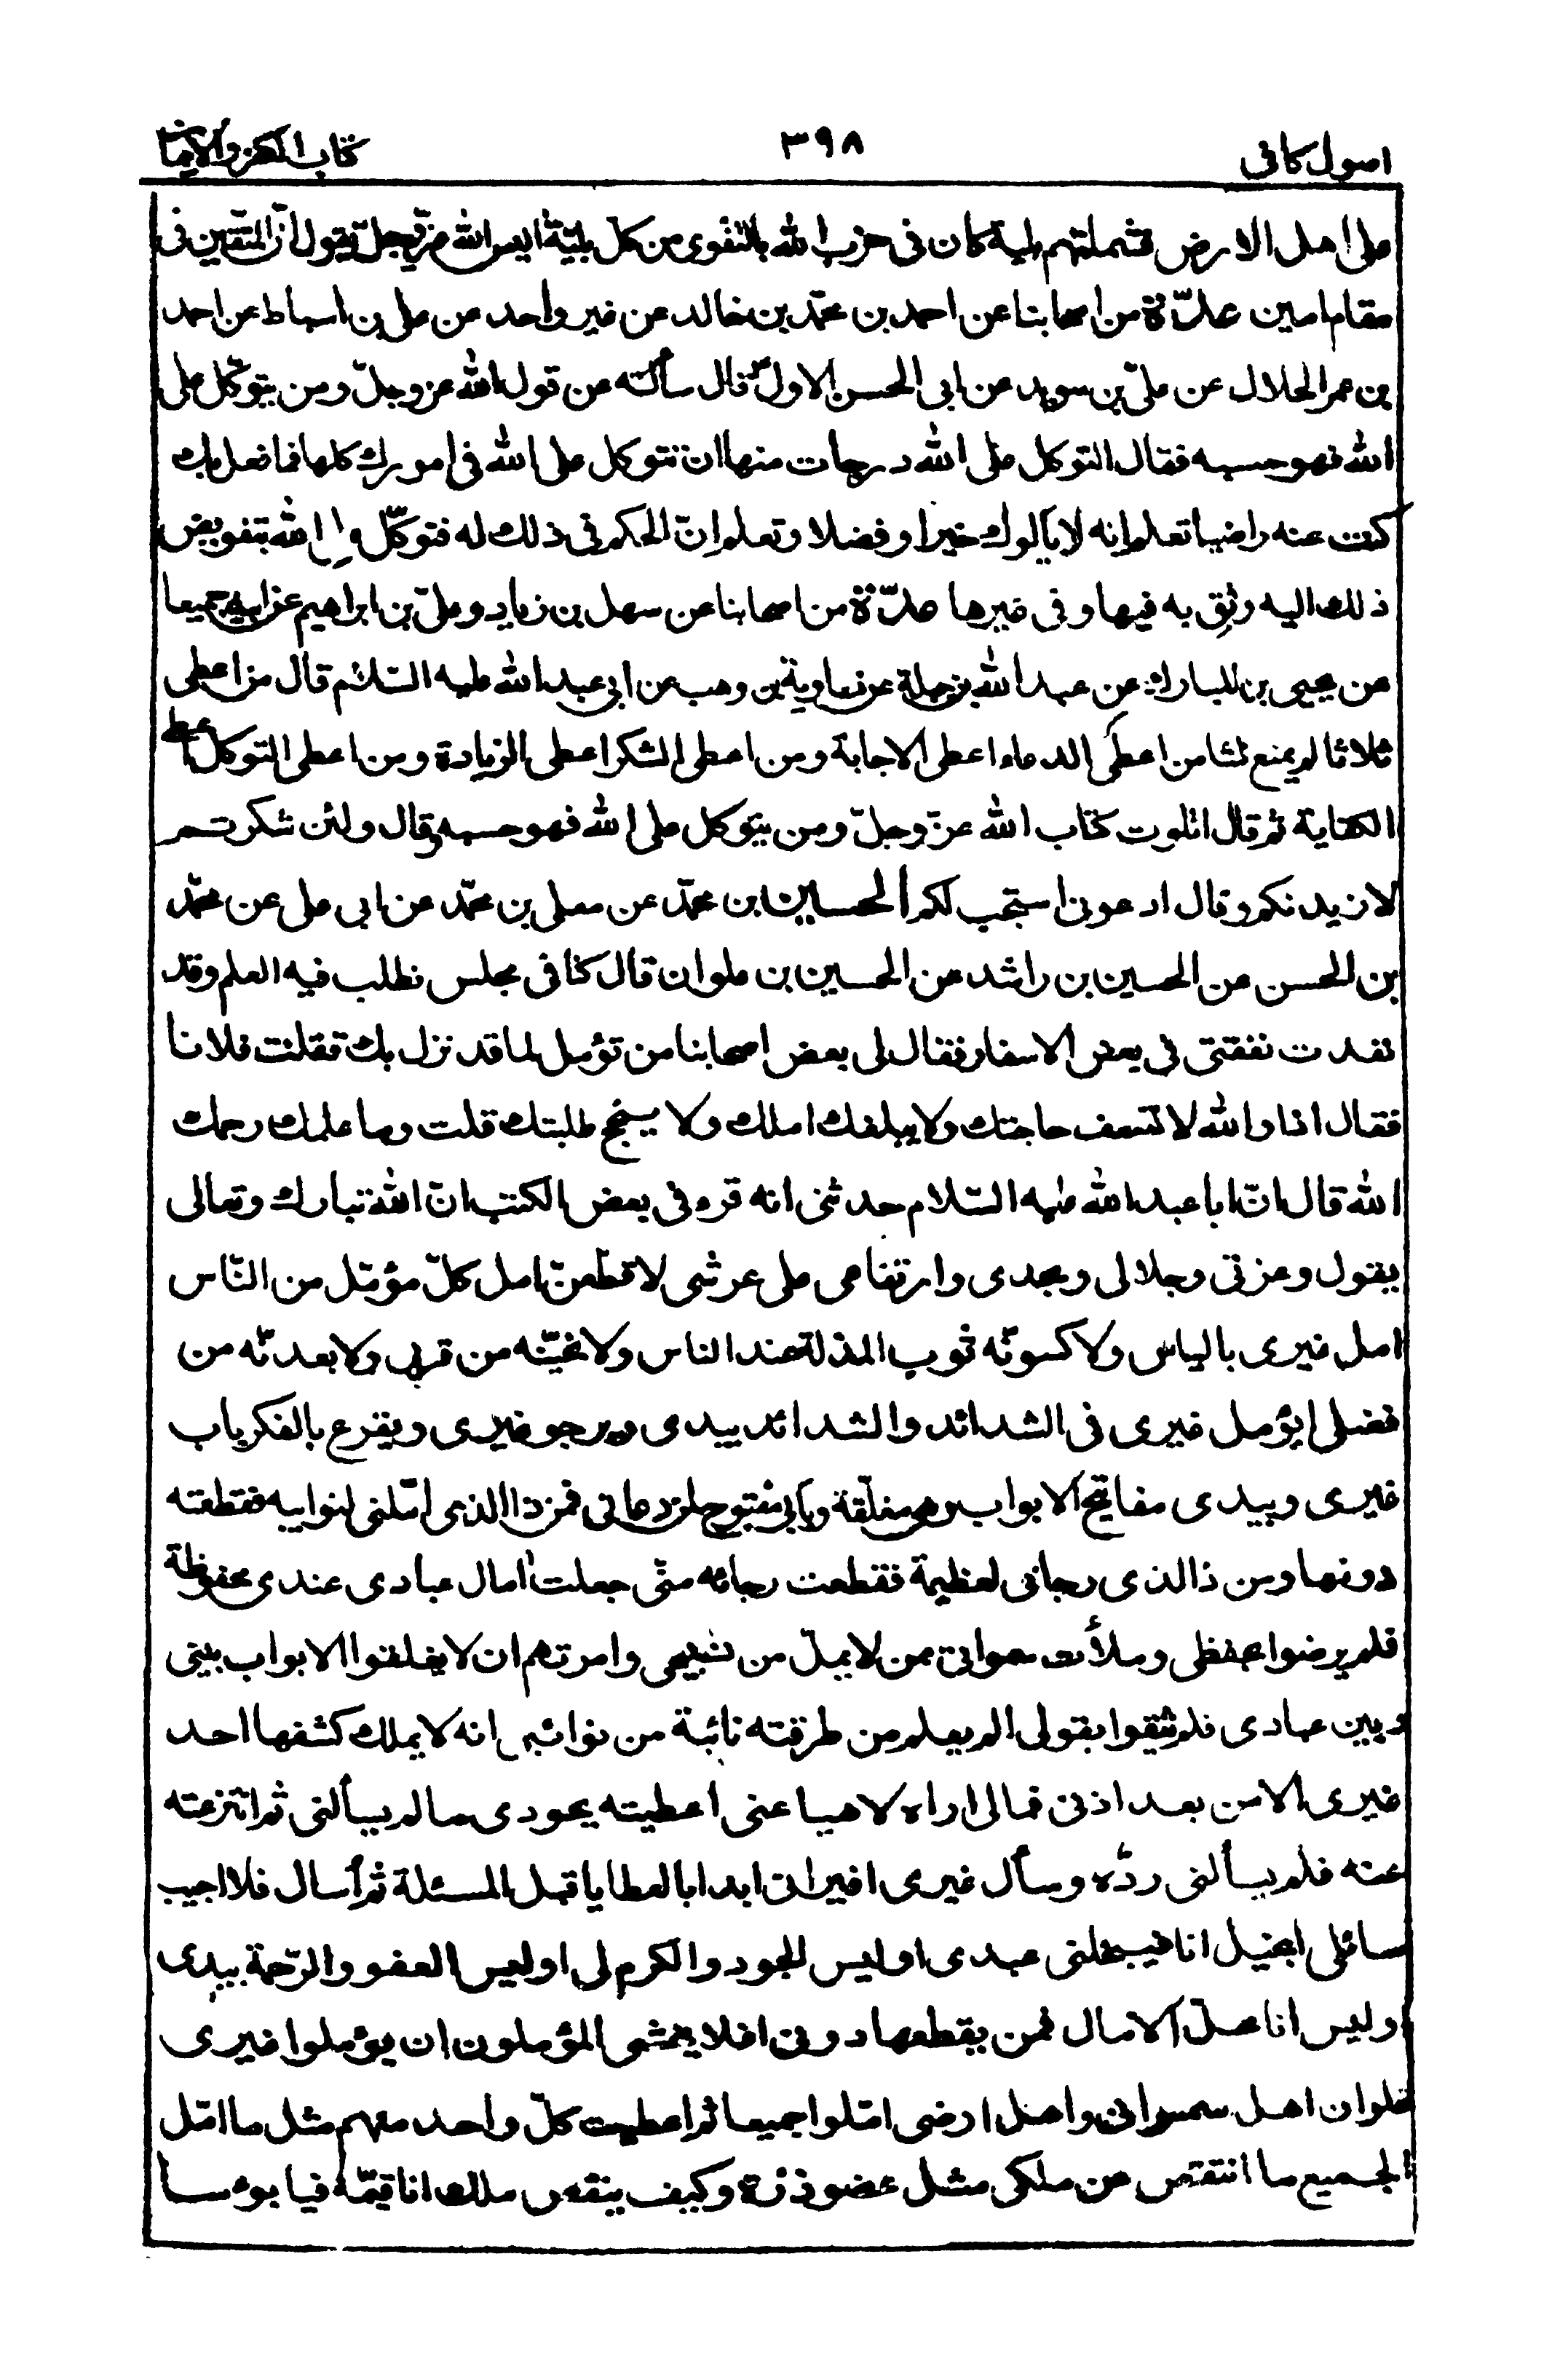 اصول كافى
٣٩٨
كتاب الكفر والايمان
على اهل الارض فشملتهم بلية كان فى حزب الله بالتقوى من كلّ بليّة اليس الله عزّ وجلّ يقول انّ المتقين فى
مقام امين عدّة من اصحابنا عن احمد بن محمّد بن خالد عن غير واحد عن على بن اسباط عن احمد
بن عمر الحلال عن علىّ بن سويد عن ابى الحسن الاول قال سألته عن قول الله عز وجلّ ومن يتوكّل على
الله فهو حسبه فقال التوكل على الله درجات منها ان تتوكل على الله فى امورك كلها فما فعل بك
كنت عنه راضيا تعلم انه لا يألوك خيرا وفضلا وتعلم انّ الحكم فى ذلك له فتوكّل على الله بتفويض
ذلك اليه وثق به فيها وفى غيرها عدّة من اصحابنا عن سهل بن زياد وعلىّ بن ابراهيم عن ابيه جميعا
عن يحيى بن المبارك عن عبد الله بن جبلة عن معاوية بن وهب عن ابى عبد الله عليه السّلام قال من اعطى
ثلاثا لم يمنع ثلثا من اعطى الدعاء اعطى الاجابة ومن اعطى الشكر اعطى الزيادة ومن اعطى التوكل اعطى
الكفاية ثم قال اتلوت كتاب الله عزّ وجلّ ومن يتوكل على الله فهو حسبه وقال ولئن شكرتم
لازيدنكم وقال ادعونى استجب لكم الحسين بن محمّد عن معلى بن محمّد عن ابى على عن محمّد
بن الحسن عن الحسين بن راشد عن الحسين بن علوان قال كنا فى مجلس نطلب فيه العلم وقد
نفدت نفقتى فى بعض الاسفار فقال لى بعض اصحابنا من تؤمل لما قد نزل بك فقلت فلانا
فقال اذا والله لا تسعف حاجتك ولا يبلغك املك ولا يسنجح طلبتك قلت وما علمك رحمك
الله قال انّ ابا عبد الله عليه السّلام حدثنى انه قرء فى بعض الكتب انّ الله تبارك وتعالى
يقول وعزتى وجلالى ومجدى وارتفاعى على عرشى لاقطعنّ امل كلّ مؤمّل من النّاس
امل غيرى بالياس ولاكسونّه ثوب المذلة عند الناس ولانحيّنّه من قربى ولابعدنّه من
فضلى ايؤمل غيرى فى الشدائد والشدائد بيدى ويرجو غيرى ويقرع بالفكر باب
غيرى وبيدى مفاتيح الابواب وهى مغلّقة وبابى مفتوح لمن دعانى فمن ذا الذى امّلنى لنوايبه فقطعته
دونها ومن ذا الذى رجانى لعظيمة فقطعت رجائه منّى جعلت امال عبادى عندى محفوظة
فلم يرضوا بحفظى وملأت سمواتى ممن لا يملّ من تسبيحى وامرتهم ان لا يغلقوا الابواب بينى
وبين عبادى فلم يثقوا بقولى الم يعلم من طرقته نائبة من نوائبى انه لا يملك كشفها احد
غيرى الا من بعد اذنى فمالى اراه لاهيا عنى اعطيته بجودى ما لم يسألنى ثم انتزعته
عنه فلم يسألنى ردّه وسأل غيرى افيرانى ابدا بالعطايا قبل المسئلة ثم أسال فلا اجيب
سائلى ابخيل انا فيبخلنى عبدى او ليس الجود والكرم لى او ليس العفو والرّحمة بيدى
او ليس انا محلّ الامال فمن يقطعها دونى افلا يخشى المؤملون ان يؤملوا غيرى
فلو ان اهل سمواتى واهل ارضى امّلوا جميعا ثم اعطيت كلّ واحد منهم مثل ما امّل
الجميع ما انتقص من ملكى مثل عضو ذرّة وكيف ينقص ملك انا قيّمه فيا بوءسا